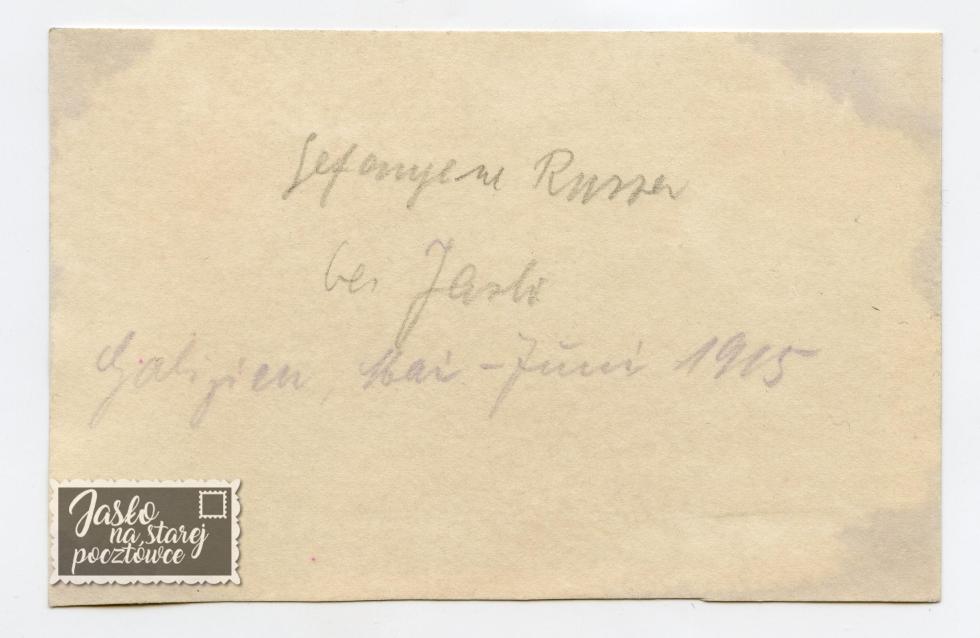 Gefangene Russen
bei Jaslo
Galizien, Mai - Juni 1915
Jasło
na starej
pocztówce